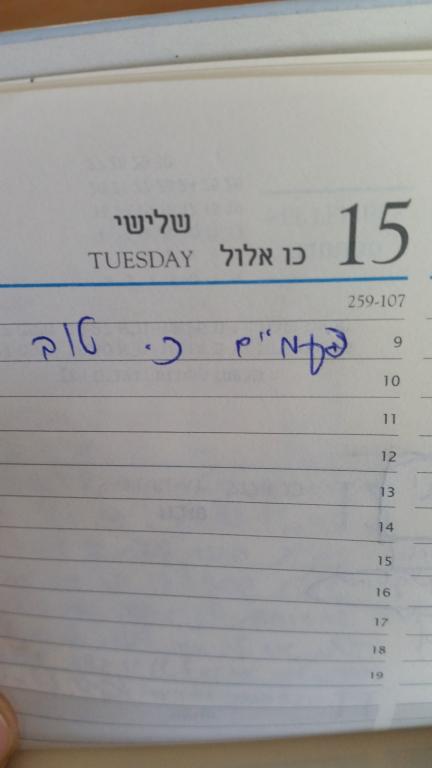 שלישי
15
כו אלול TUESDAY
259-107
9 פעמיים כי טוב
10
11
12
13
14
15
16
17
18
19